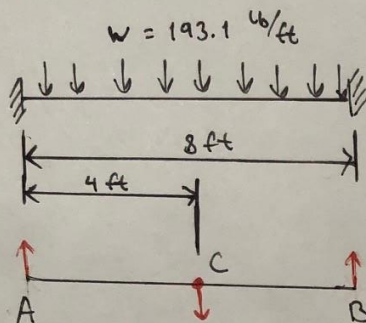 w = 193.1 lb/ft
8 ft
4 ft
C
A
B